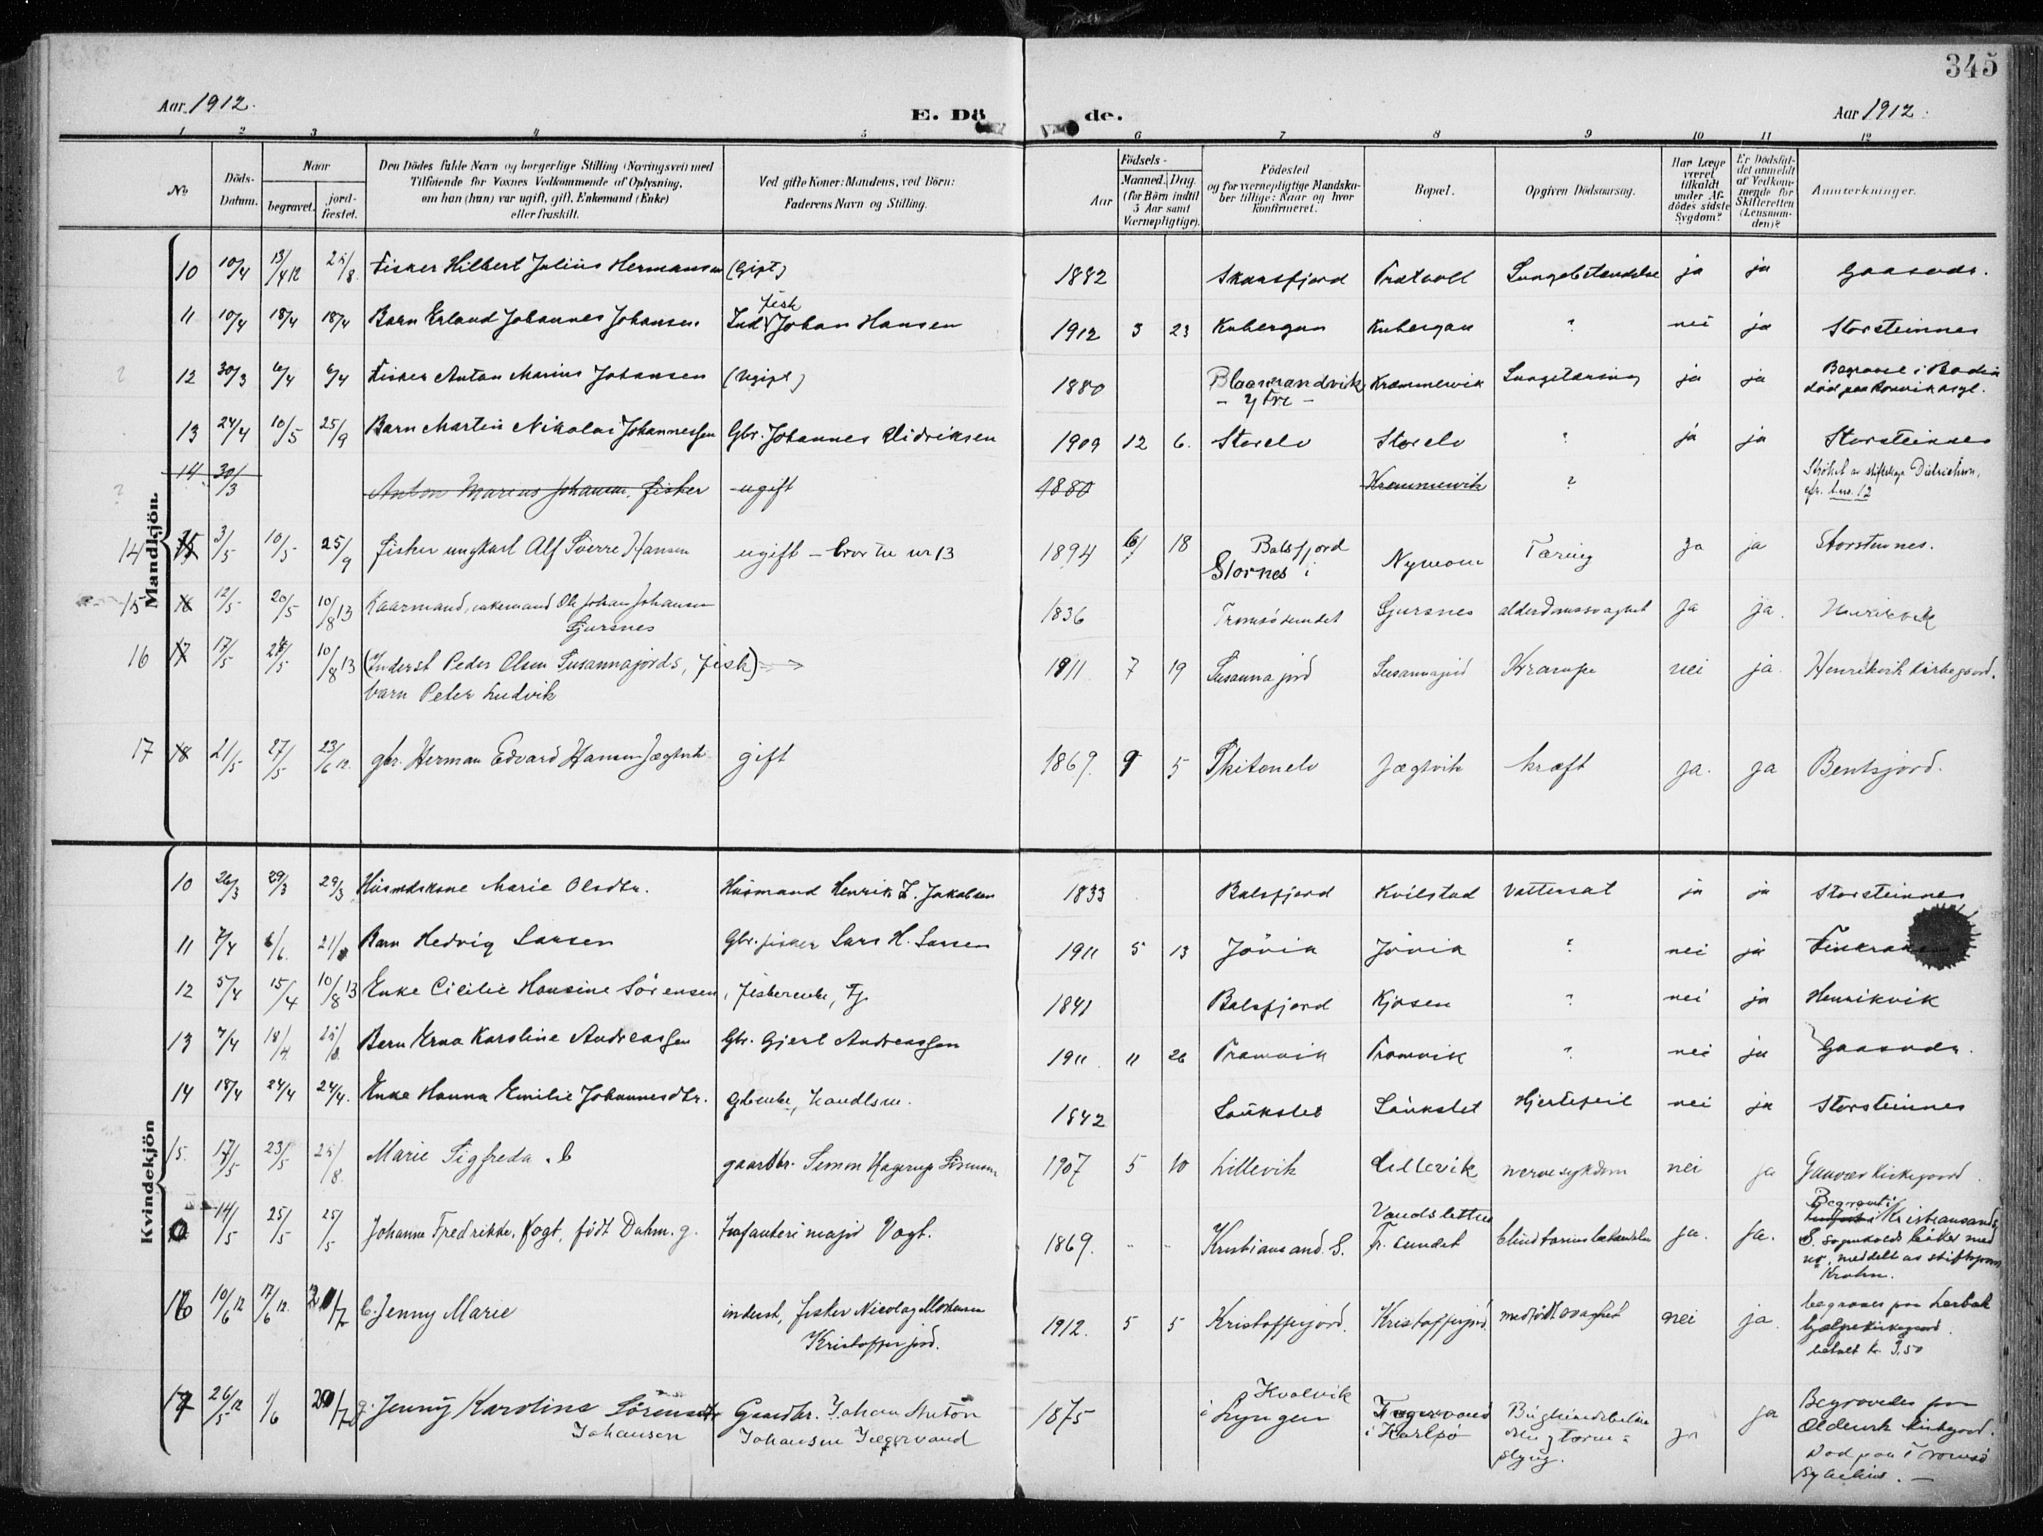 345
Aar 1912.
E. Dö de.
Aar 1912.
1 2 3 4 5 6 7 8 9 10 11 12
No
Döds-Datum.
Naar
begravet.
jord-fæstet.
Den Dödes fulde Navn og borgerlige Stilling (Næringsvei) med
Tilföiende for Voxnes Vedkommende af Oplysning,
om han (hun) var ugift, gift, Enkemand (Enke)
eller fraskilt.
Ved gifte Koner: Mandens, ved Börn:
Faderens Navn og Stilling.
Födsels-
Aar
Maaned. Dag.
(for Börn indtil
5 Aar samt
Værnepligtige).
Födested
og for værnepligtige Mandska-
ber tillige: Naar og hvor
konfirmeret.
Bopæl.
Opgiven Dödsaarsag.
Har Læge
været
tilkaldt
under Af-
dödes sidste
Sygdom?
Er Dödsfal-
det anmeldt
af Vedkom-
mende for
Skifteretten
(Lensman-
den)?
Anmerkninger.
Mandkjön.
10 10/4 13/4 12 /8 Fisker Hilbert Julius Hermansen (Gift) 1882 Skarsfjord Trætvoll Lungebetændelse ja ja Gaasvdr.
11 10/4 18/4 18/4 Barn Erland Johannes Johansen Ind. fisk Johan Hansen 1912 3 23 Kobergan Kobergan ? nei ja Storsteinnes
12 30/3 6/4 6/4 Fisker Anton Marius Johansen (Ugift) 1880 Blaanrandvik - Ytre - Kræmmervik Lungetæring ja ja Begravet i Bodin
død paa Rønvik asyl.
13 24/4 10/5 25/9 Barn Martin Nikolai Johannessen Gbr. Johannes Didriksen 1909 12 6. Storelv Storelv ? ja ja Storsteinnes
14 30/3 Anton Marius Johansen, fisker ugift 1880 Kræmmervik ? Strøket av stiftskap. Didrichsen,
cfr. l.nr. 12
14 15 3/5 10/5 25/9 fisker ungkarl Alf Sverre Hansen ugift - bror til nr 13 1894 6/ 18 Balsfjord
Stornes i Nymoen Tæring ja ja Storstennes.
15 16 12/5 20/5 10/8 13 Kaarmand, enkemand Ole Johan Johansen
Sjursnes 1836 Tromsøsundet Sjursnes alderdomssvaghet ja ja. Henrikvik
16 17 17/5 28/5 10/8 13 (Inderst Peder Olsen Susannajords, fisk)
barn Peter Ludvik 1911 7 19 Susannajord Susannajord Krampe nei ja. Henrikvik kirkegaard.
17 18 21/5 27/5 23/6 12. gbr. Herman Edvard Hansen Jægtvik gift 1869. 9 5 Skitenelv Jægtvik kræft ja. ja Bentsjord.
Kvindekjön
10 26/3 29/3 29/3 Husmdskone Marie Olsdtr. Husmand Henrik Z. Jakobsen 1833 Balsfjord Kvilstad Vattersot ja ja Storsteinnes
11 7/4 6/6. 21/ Barn Hedvig Larsen Gbr. fisker Lars H. Larsen 1911 5 13 Jövik Jövik ? nei ja
12 5/4 15/4 10/8 13 Enke Cicilie Hansine Sörensen, fiskerenke, 1841 Balsfjord Kjosen ? nei ja Henrikvik
13 7/4 18/4 /8 Barn Erna Karoline Andreassen Gbr. Gjert Andreassen 1911 11 26 Tromvik Tromvik ? nei ja Gaasvdr.
14 18/4 24/4 24/4. Enke Hanna Emilie Johannesdtr. gbrenke, 1842 Laukslet Laukslet Hjertefeil nei ja Storsteinnes
15. 17/5 23/5 /8. Marie Sigfreda. b gaardbr. Simon Hagerup Simonsen 1907 5 10 Lillevik Lillevik nervesygdom nei ja kirkegaard.
0 14/5 25/5 25/5 Johanne Fredrikke Vogt, født Dahm. g. Infanterimajor Vogt. 1869. - - Kristiansand. S. Vandsletten
Tr. sundet blindtarmsbetændelse ja. ja. Begravet i Kristiansand
S.
meddelt av stiftsprost
Krohn.
16 10/6 12 17/6 12. /7 b. Jenny Marie inderst, fisker Nicolay
Kristofferjord. 1912. 5 5 Kristofferjord. Kristofferjord. medfødt svaghet nei ja. begraves paa Lerbak
hjælpekirkegaard.
betalt kr 3.50
17 26/5 12 1/6 20/7 g. Jenny Karoline Sörensdtr
Johansen Gaardbr. Johan Anton
Johansen Jægervand 1875 Kvalvik
i Lyngen Jægervand
i Karlsø ja ja Begravedes paa
Oldervik kirkegaard.
Død paa Tromsø
sykehus. -